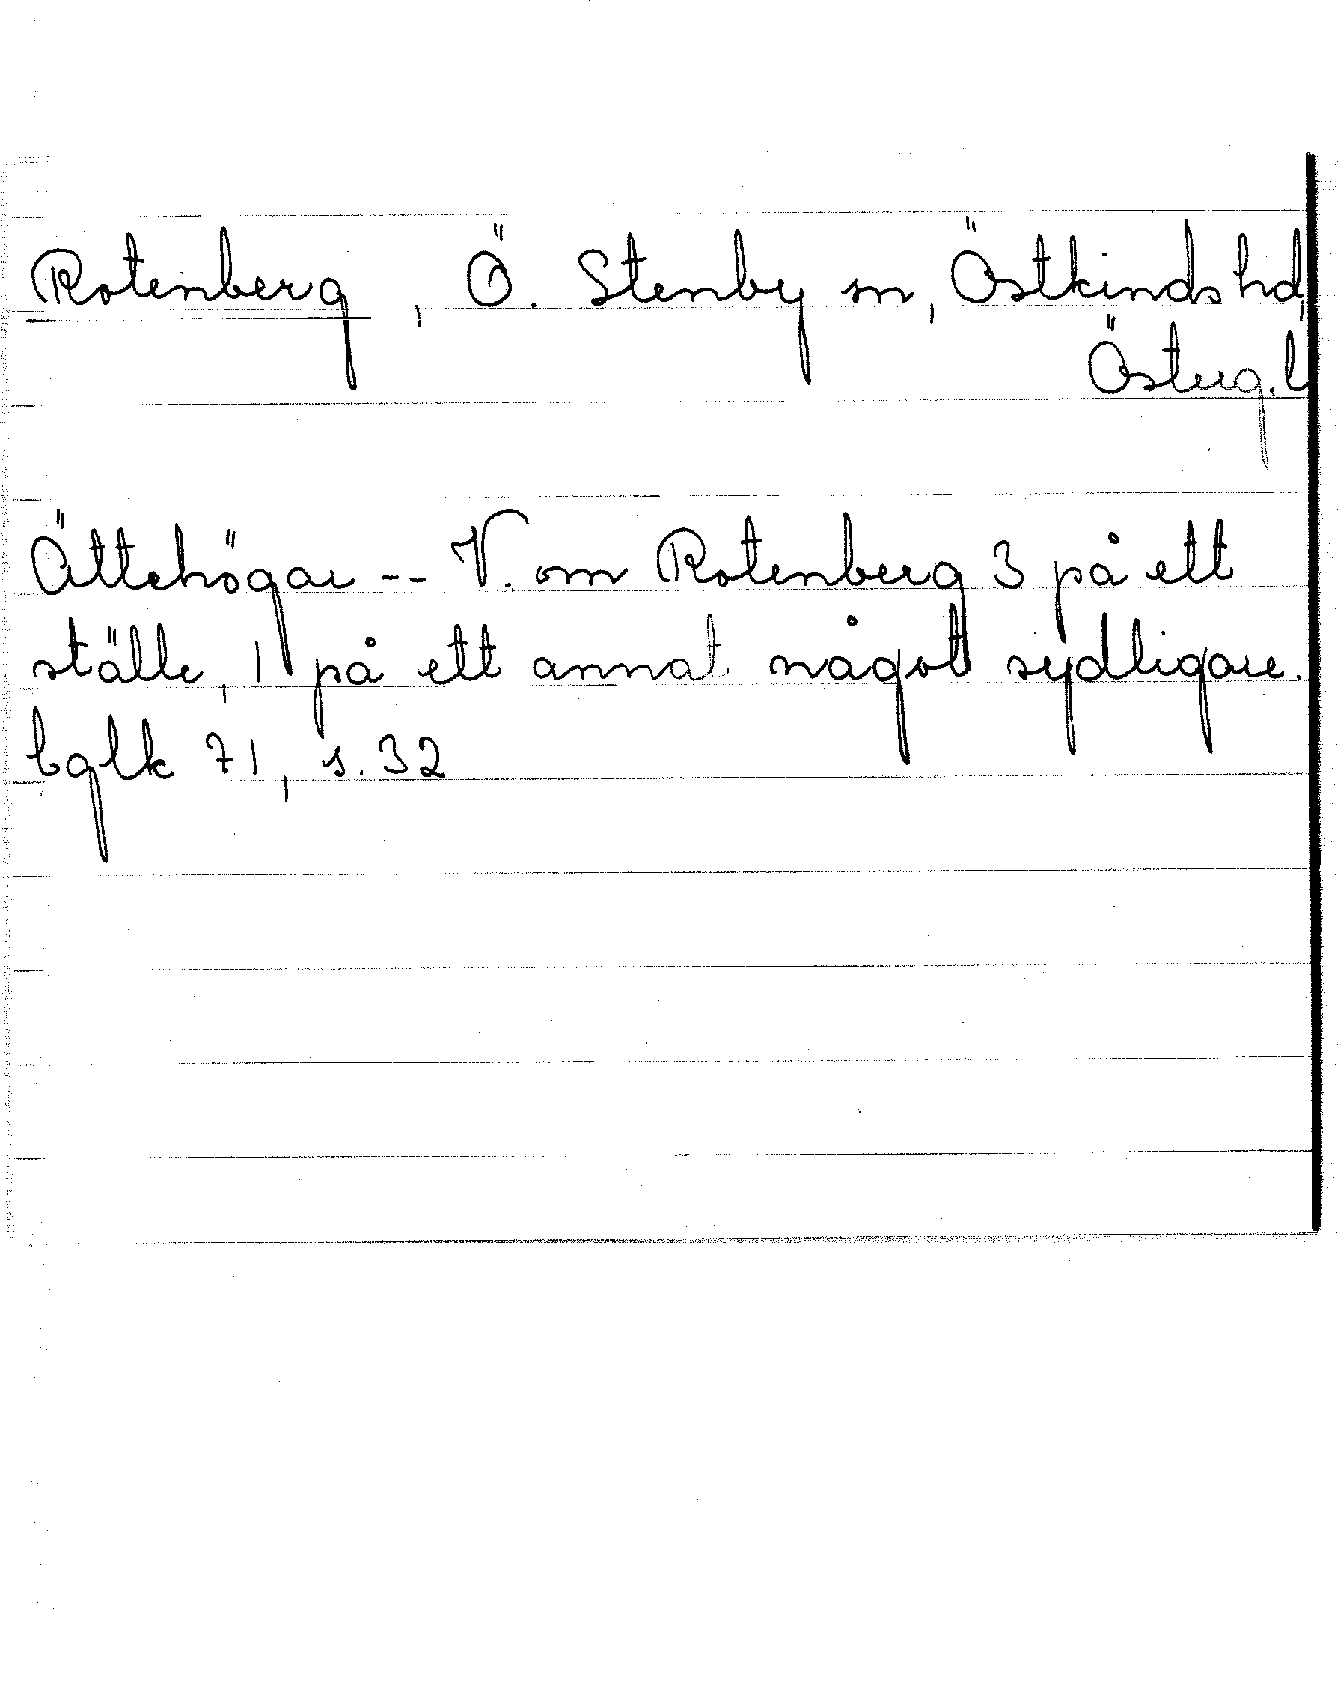 Rotenberg, Ö. Stenby sn, Östkinds hd,
Österg. l
Ättehögar -- V. om Rotenberg 3 på ett
ställe, 1 på ett annat något sydligare.
bglk 71, s. 32